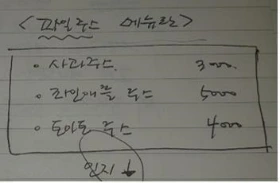 <과일쥬스 메뉴판>
• 사과쥬스 3000
• 파인애플 쥬스 5000
• 토마토 쥬스 4000
↓